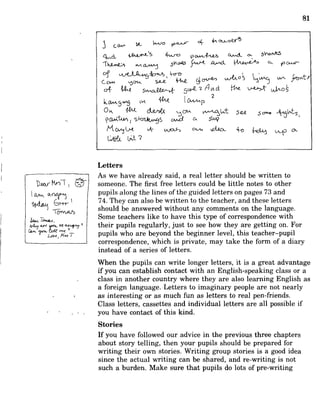 81
I can se two pair of trousers
and there's two panthes and a shorts
There's many shoes fur and there's a pair
of wellingtons, too
Can you see the gloves who's lying in front
of the smallest girl? And the vest who's
hanging on the lamp?
On the desk you might see some tights,
panties, stockings and a
Maybe it was an idea to tidy up a
little bit?
Dear Mrs T,
I am angry
today
Tomas
Dear Tomas,
Why are you so angry?
Can you tell me?
Love, Mrs T
Letters
As we have already said, a real letter should be written to
someone. The first free letters could be little notes to other
pupils along the lines of the guided letters on pages 73 and
74. They can also be written to the teacher, and these letters
should be answered without any comments on the language.
Some teachers like to have this type of correspondence with
their pupils regularly, just to see how they are getting on. For
pupils who are beyond the beginner level, this teacher–pupil
correspondence, which is private, may take the form of a diary
instead of a series of letters.
When the pupils can write longer letters, it is a great advantage
if you can establish contact with an English-speaking class or a
class in another country where they are also learning English as
a foreign language. Letters to imaginary people are not nearly
as interesting or as much fun as letters to real pen-friends.
Class letters, cassettes and individual letters are all possible if
you have contact of this kind.
Stories
If you have followed our advice in the previous three chapters
about story telling, then your pupils should be prepared for
writing their own stories. Writing group stories is a good idea
since the actual writing can be shared, and re-writing is not
such a burden. Make sure that pupils do lots of pre-writing